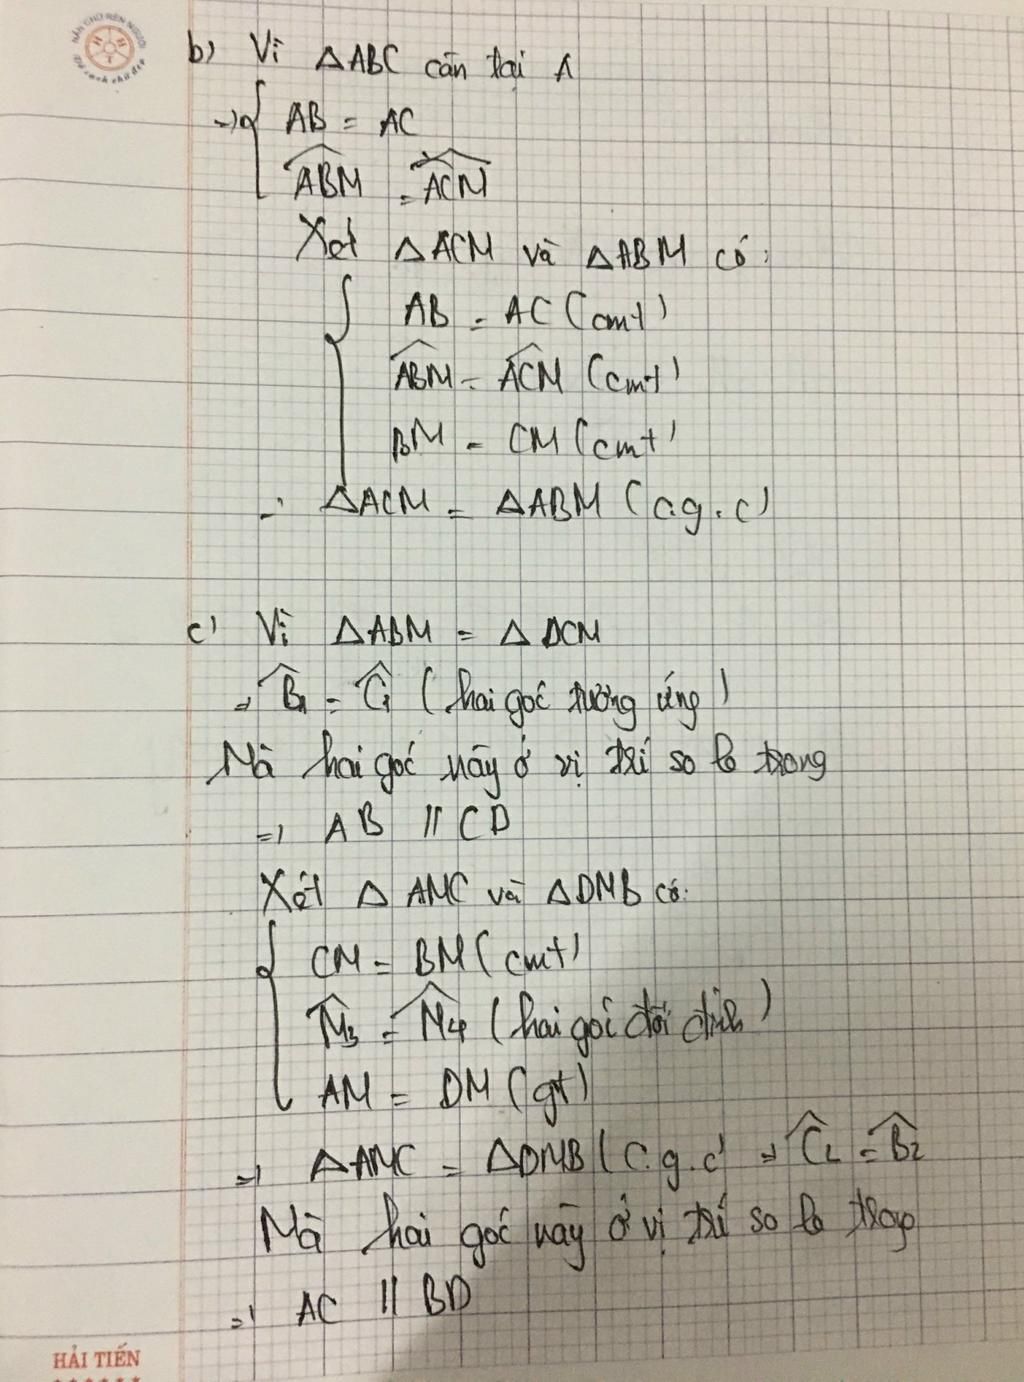 NẮN CHỮ RÈN NGƯỜI
b) Vì △ABC cân tại A
=> { AB = AC
ABM = ACM
Xét △ACM và △ABM có:
AB = AC (cmt)
ABM = ACM (cmt)
BM = CM (cmt)
=> △ACM = △ABM (c.g.c)
c) Vì △ABM = △DCM
=> B1 = C1 (hai góc tương ứng)
Mà hai góc này ở vị trí so le trong
=> AB // CD
Xét △ AMC và △DMB có:
CM = BM (cmt)
M3 = M4 (hai góc đối đỉnh)
AM = DM (gt)
=> △AMC = △DMB (c.g.c) => C2 = B2
Mà hai góc này ở vị trí so le trong
=> AC // BD
HẢI TIẾN